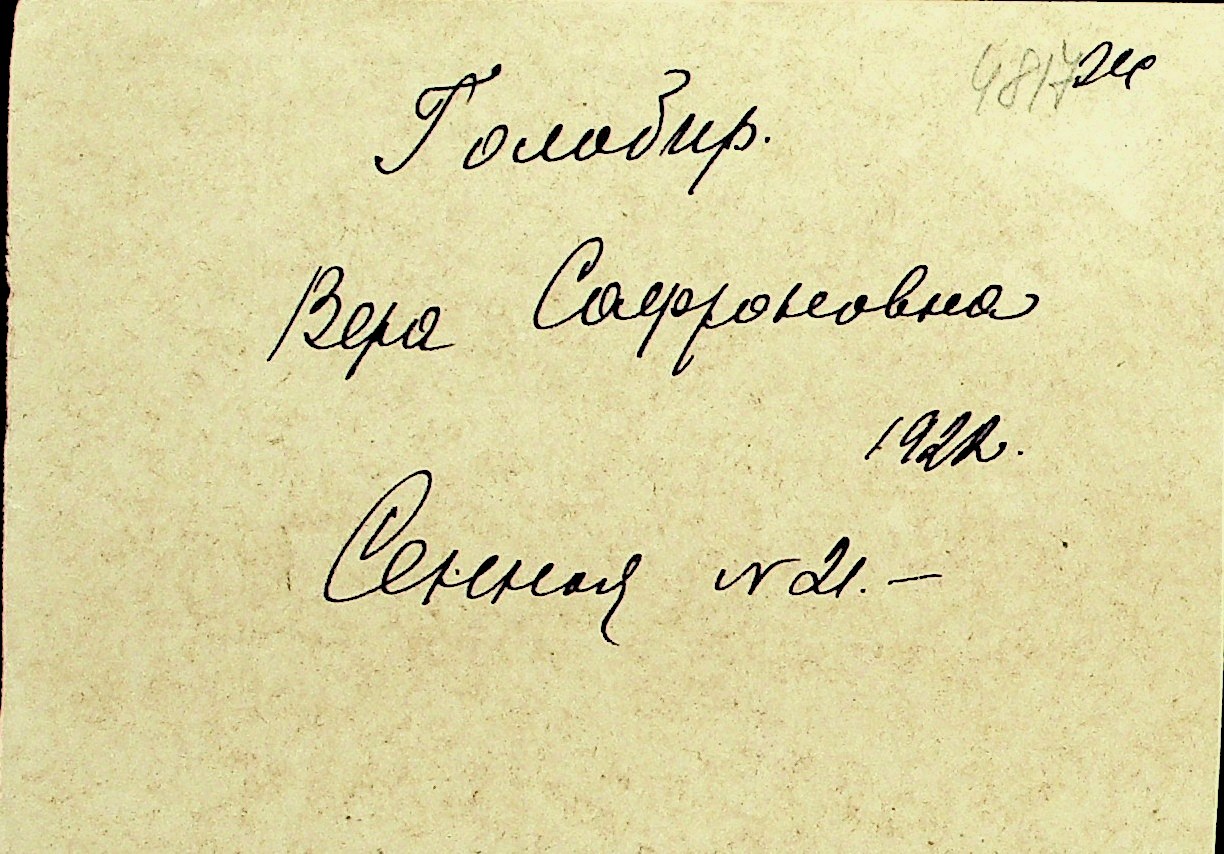 4817 ж
Голобир.
Вера Сафроновна
1922.
Сенная N 21. —